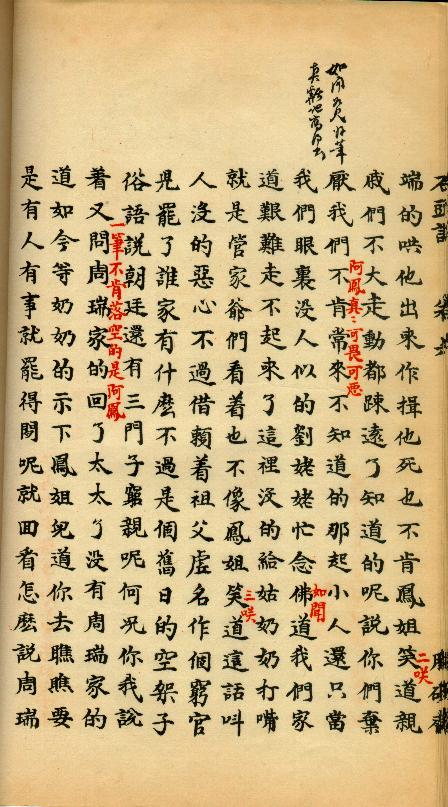 石頭記
端的哄他出來作揖他死也不肯鳳姐笑道親
二咲
戚們不大走動都踈遠了知道的呢説你們棄
阿鳳真〻可畏可惡
厭我們不肯常來不知道的那起小人還只當
我們眼裏没人似的劉姥姥忙念佛道我們家
如聞
道艱難走不起來了這裡沒的給姑奶奶打嘴
就是管家爺們看着也不像鳳姐笑道這話叫
三咲
人沒的惡心不過借賴着祖父虛名作個窮官
児罷了誰家有什麽不過是個舊日的空架子
俗語説朝廷還有三門子窮親呢何况你我説
一筆不肯落空的是阿鳳
着又問周瑞家的回了太太了没有周瑞家的
道如今等奶奶的示下鳳姐兒道你去瞧瞧要
是有人有事就罷得閑呢就回看怎麽説周瑞